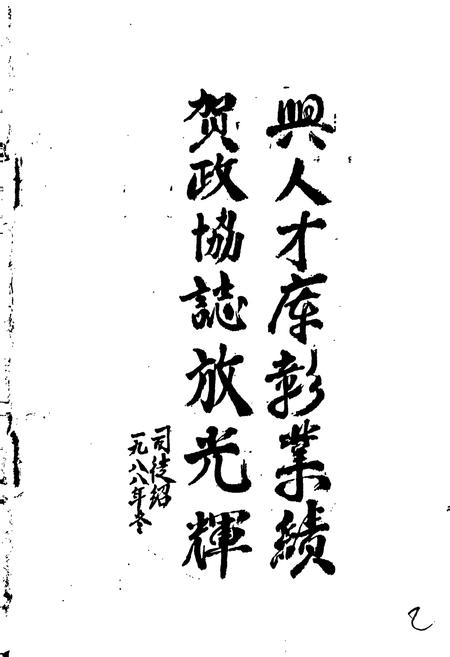 興人才库彰業績
贺政協誌放光輝
司徒绍
一九八八年冬
乙